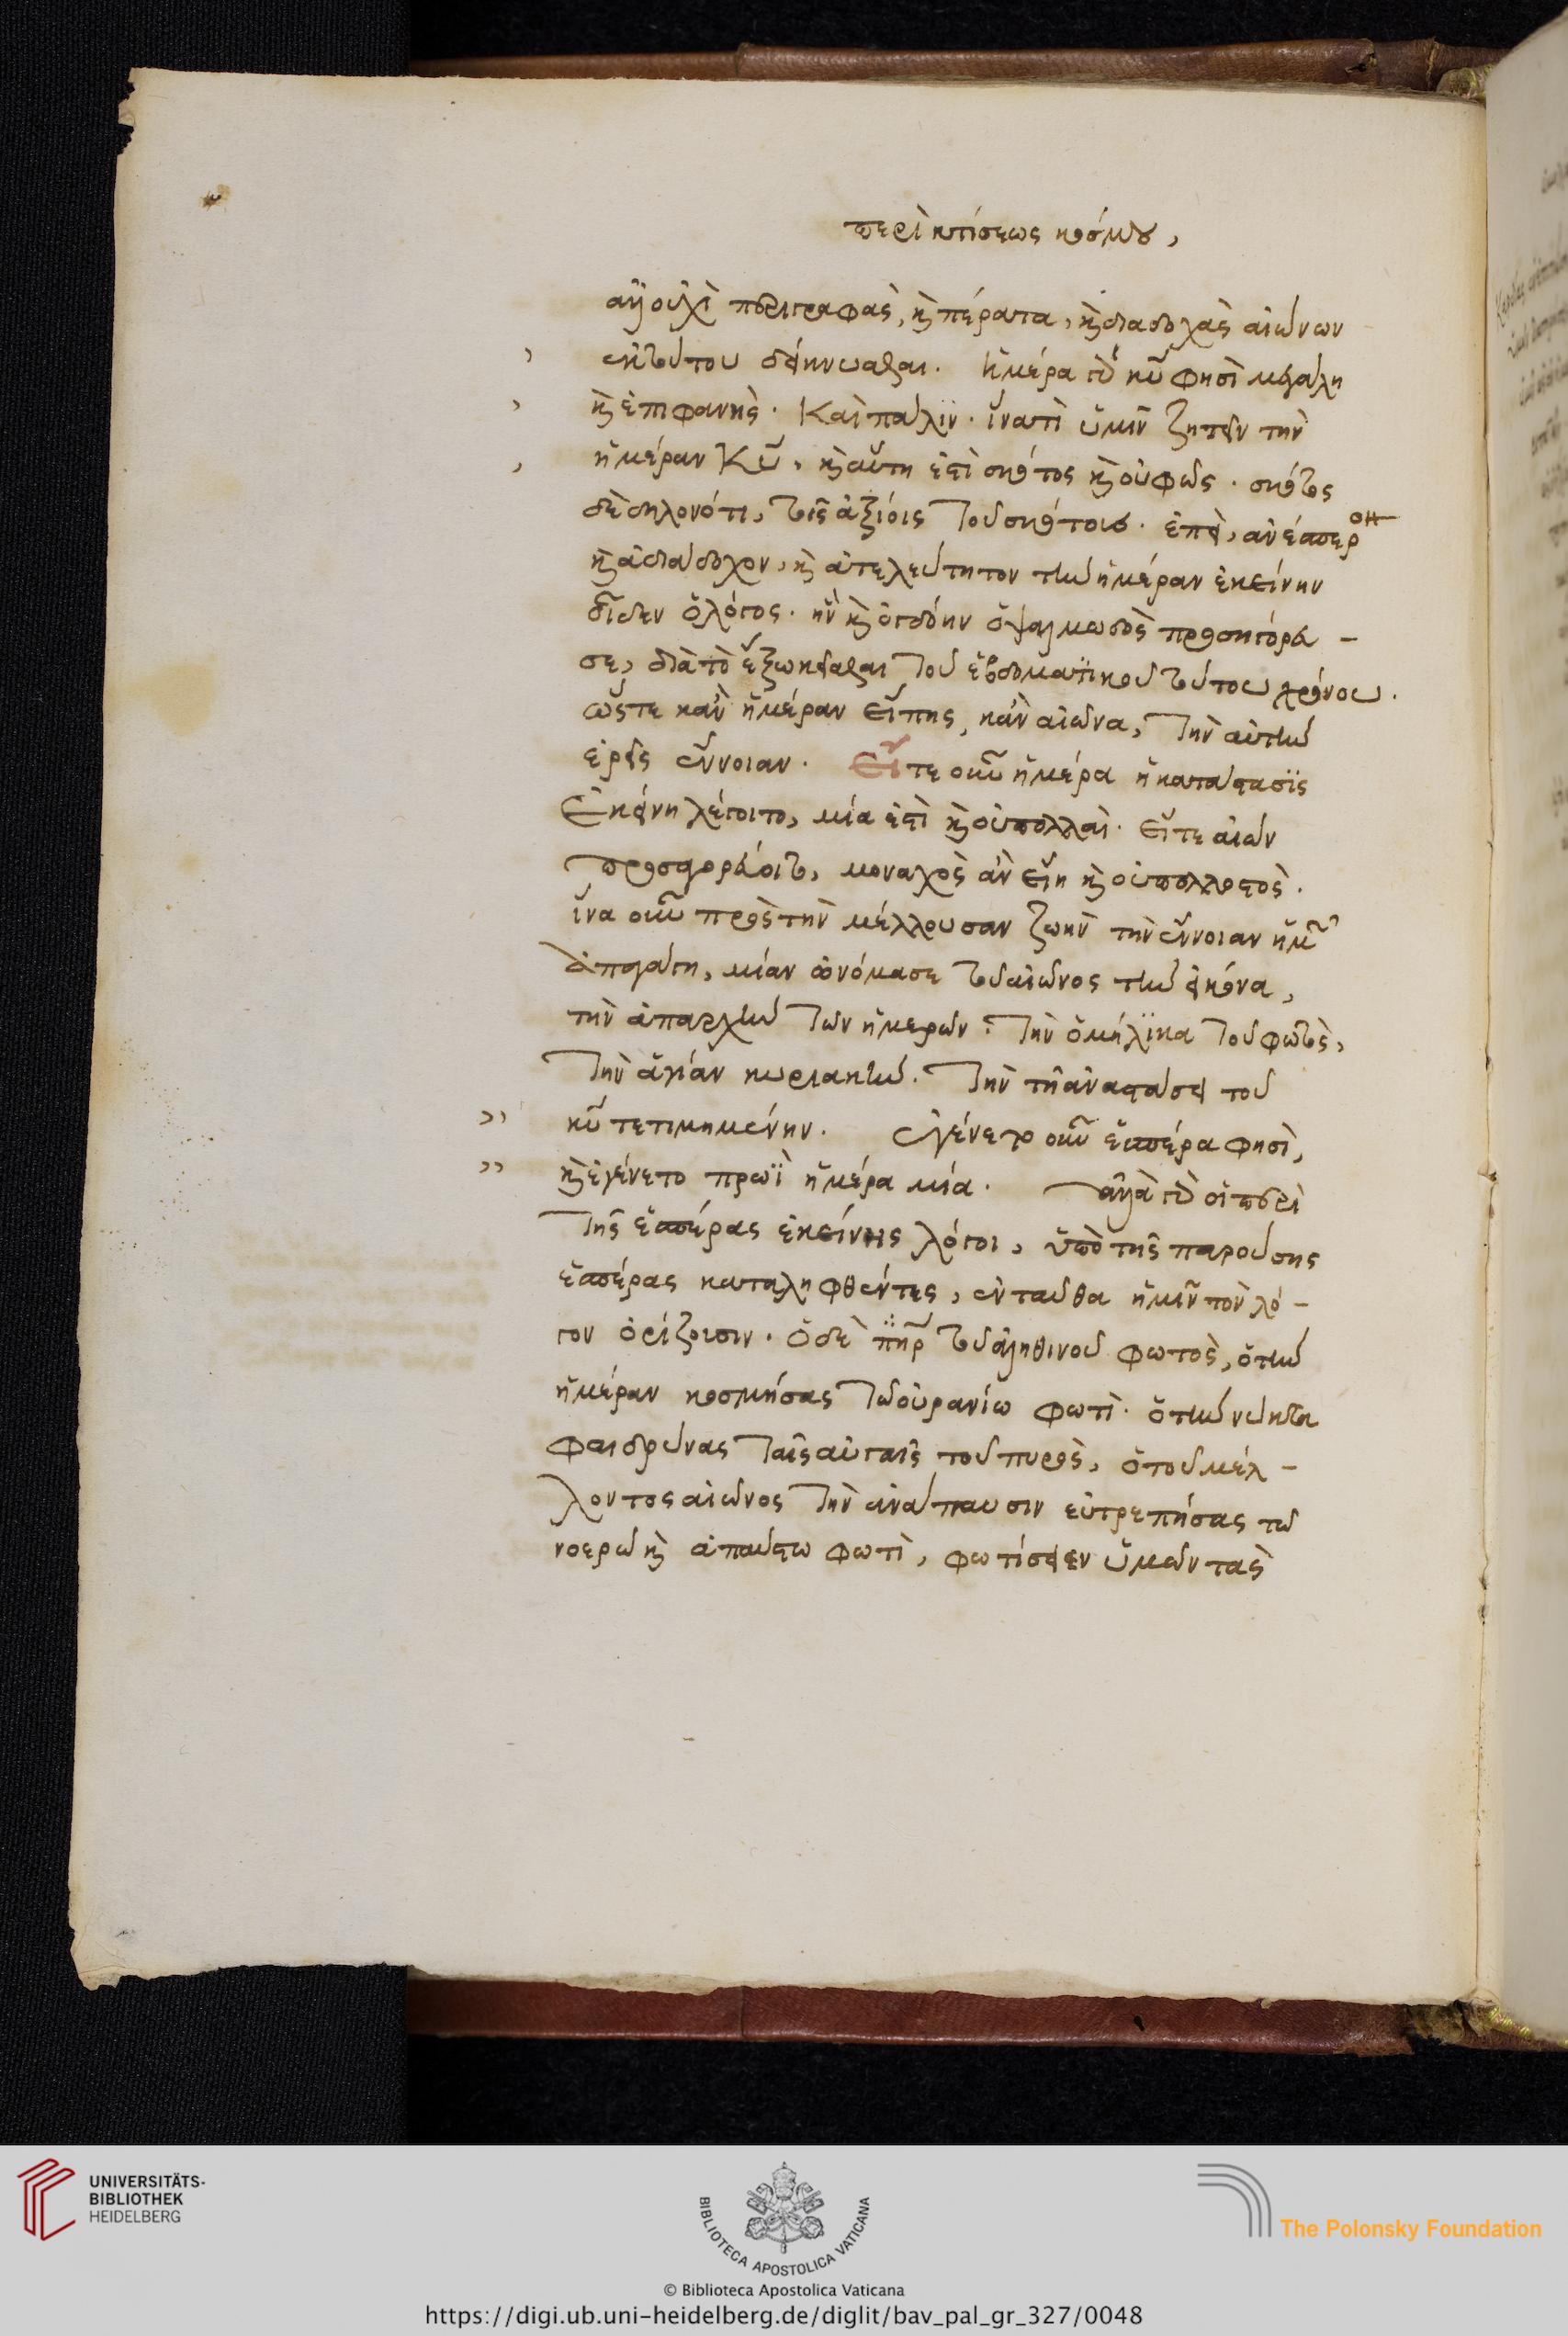 περὶ κτίσεως κόσμου,
ἀλλ' οὐχὶ περιγραφὰς, καὶ πέρατα, καὶ διαδοχὰς αἰώνων
ἐκ τούτου δείκνυσθαι. ἡμέρα γὰρ κυ φησὶ μεγάλη
καὶ ἐπιφανής. Καὶ πάλιν. ἵνατί ὑμῖν ζητεῖν τὴν
ἡμέραν Κυ, καὶ αὕτη ἐστὶ σκότος καὶ οὐ φῶς. σκότος
δὲ δηλονότι, τοῖς ἀξίοις τοῦ σκότους. ἐπεὶ, ἀνέσπερον
καὶ ἀδιάδοχον, καὶ ἀτελεύτητον τὴν ἡμέραν ἐκείνην
οἶδεν ὁ λόγος. ἣν καὶ ὀγδόην ὁ ψαλμωδὸς προσηγόρευ-
σε, διὰ τὸ ἔξω κεῖσθαι τοῦ ἑβδοματικοῦ τούτου χρόνου.
ὥστε κἂν ἡμέραν εἴπης, κἂν αἰῶνα, τὴν αὐτὴν
ἐρεῖς ἔννοιαν. Εἴτε οὖν ἡμέρα ἡ κατάστασις
Ἐκείνη λέγοιτο, μία ἐστὶ καὶ οὐ πολλαὶ. εἴτε αἰὼν
προσαγορεύοιτο, μοναχὸς ἂν εἴη καὶ οὐ πολλοστὸς.
ἵνα οὖν πρὸς τὴν μέλλουσαν ζωὴν τὴν ἔννοιαν ἡμῶν
ἀπαγάγη, μίαν ὠνόμασε τοῦ αἰῶνος τὴν εἰκόνα,
τὴν ἀπαρχὴν τῶν ἡμερῶν. τὴν ὁμήλικα τοῦ φωτὸς,
τὴν ἁγίαν κυριακὴν. τὴν τῇ ἀναστάσει τοῦ
κυ τετιμημένην. ἐγένετο οὖν ἑσπέρα φησὶ,
καὶ ἐγένετο πρωῒ ἡμέρα μία. ἀλλὰ γὰρ οἱ περὶ
τῆς ἑσπέρας ἐκείνης λόγοι, ὑπὸ τῆς παρούσης
ἑσπέρας καταληφθέντες, ἐνταῦθα ἡμῖν τὸν λό-
γον ὁρίζουσιν. ὁ δὲ πηρ τοῦ ἀληθινοῦ φωτὸς, ὁ τὴν
ἡμέραν κοσμήσας τῷ οὐρανίω φωτὶ. ὁ τὴν νύκτα
φαιδρύνας ταῖς αὐγαῖς τοῦ πυρὸς, ὁ τοῦ μέλ-
λοντος αἰῶνος τὴν ἀνάπαυσιν εὐτρεπήσας τῶ
νοερῶ καὶ ἀπαύστω φωτὶ, φωτίσειεν ὑμῶν τὰς
UNIVERSITÄTS-
BIBLIOTHEK
HEIDELBERG
BIBLIOTECA APOSTOLICA VATICANA
The Polonsky Foundation
© Biblioteca Apostolica Vaticana
https://digi.ub.uni-heidelberg.de/diglit/bav_pal_gr_327/0048